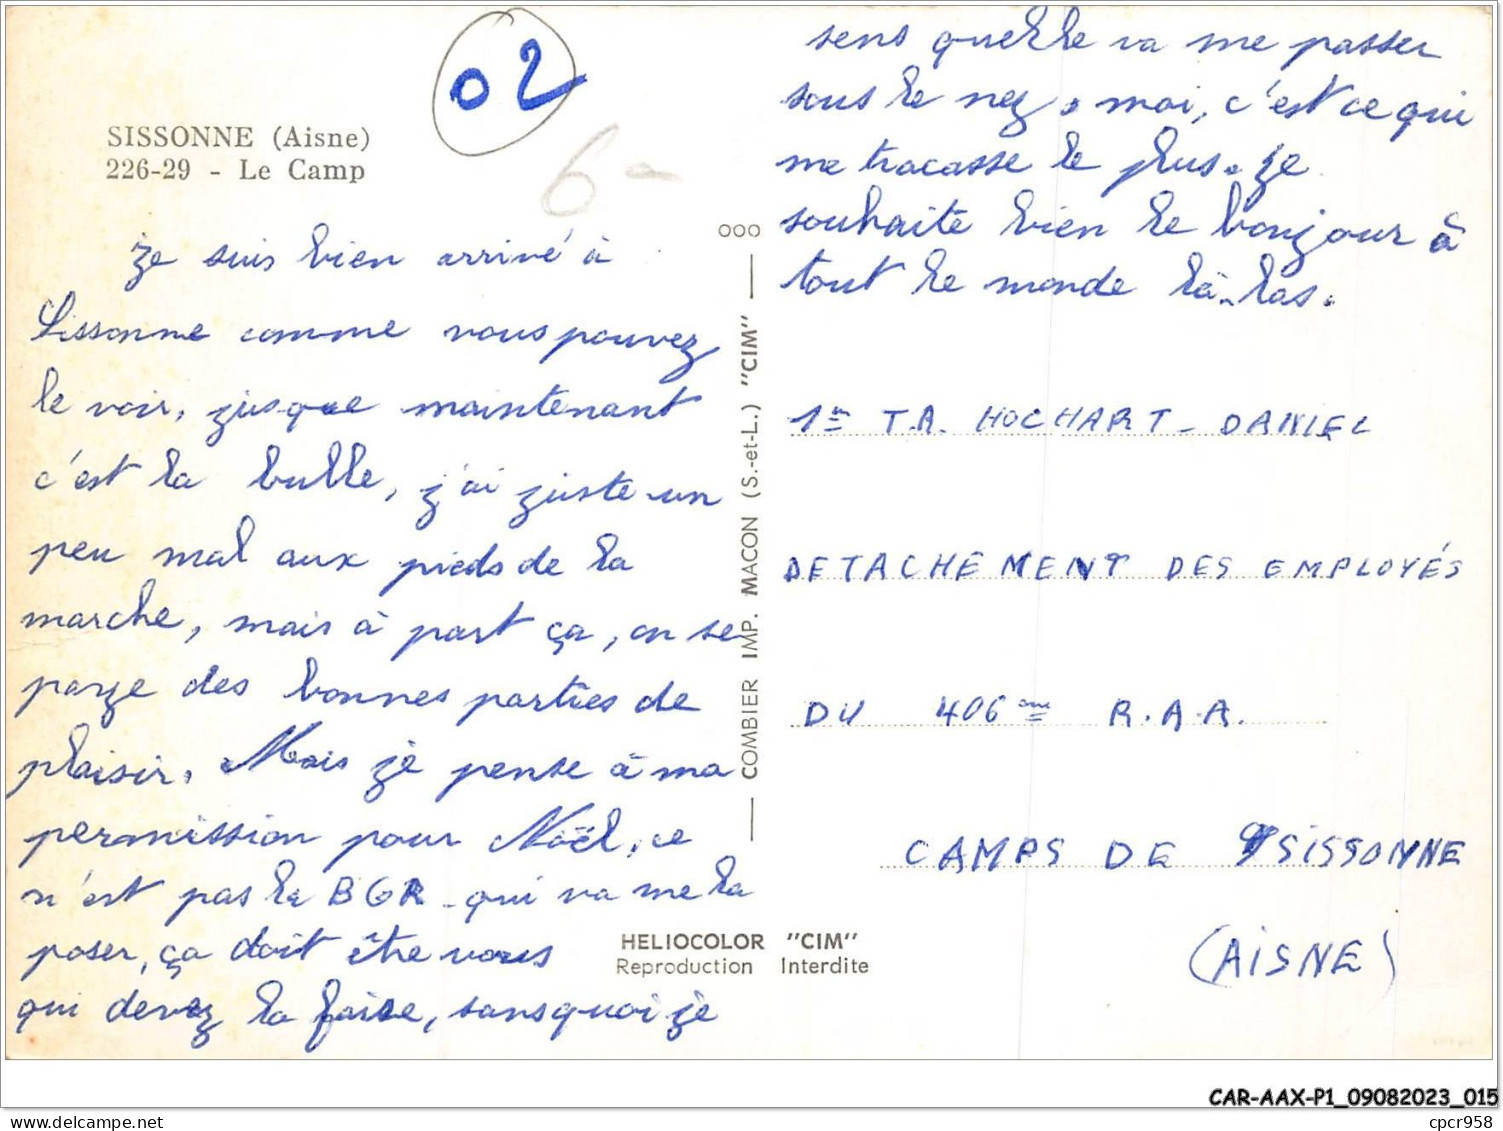 02
6-
SISSONNE (Aisne)
226-29 - Le Camp
Je suis bien arrivé à
Sissonne comme vous pouvez
le voir, jusque maintenant
c'est la bulle, j'ai juste un
peu mal aux pieds de la
marche, mais à part ça, on se
paye des bonnes parties de
plaisir. Mais je pense à ma
permission pour Noël, ce
n'est pas la BGR qui va me la
poser, ça doit être vous
qui devez la faire, sansquoi je
sens quelle va me passer
sous le nez, moi, c'est ce qui
me tracasse le plus. Je
souhaite bien le bonjour à
tout le monde là-bas.
OOO
COMBIER IMP. MACON (S.-et-L.) "CIM"
1er T.A. HOCHART-DANIEL
DETACHEMENT DES EMPLOYÉS
DU 406ème R.A.A.
CAMPS DE SISSONNE
(AISNE)
HELIOCOLOR "CIM"
Reproduction Interdite
CAR-AAX-P1_09082023_015
cpcr958